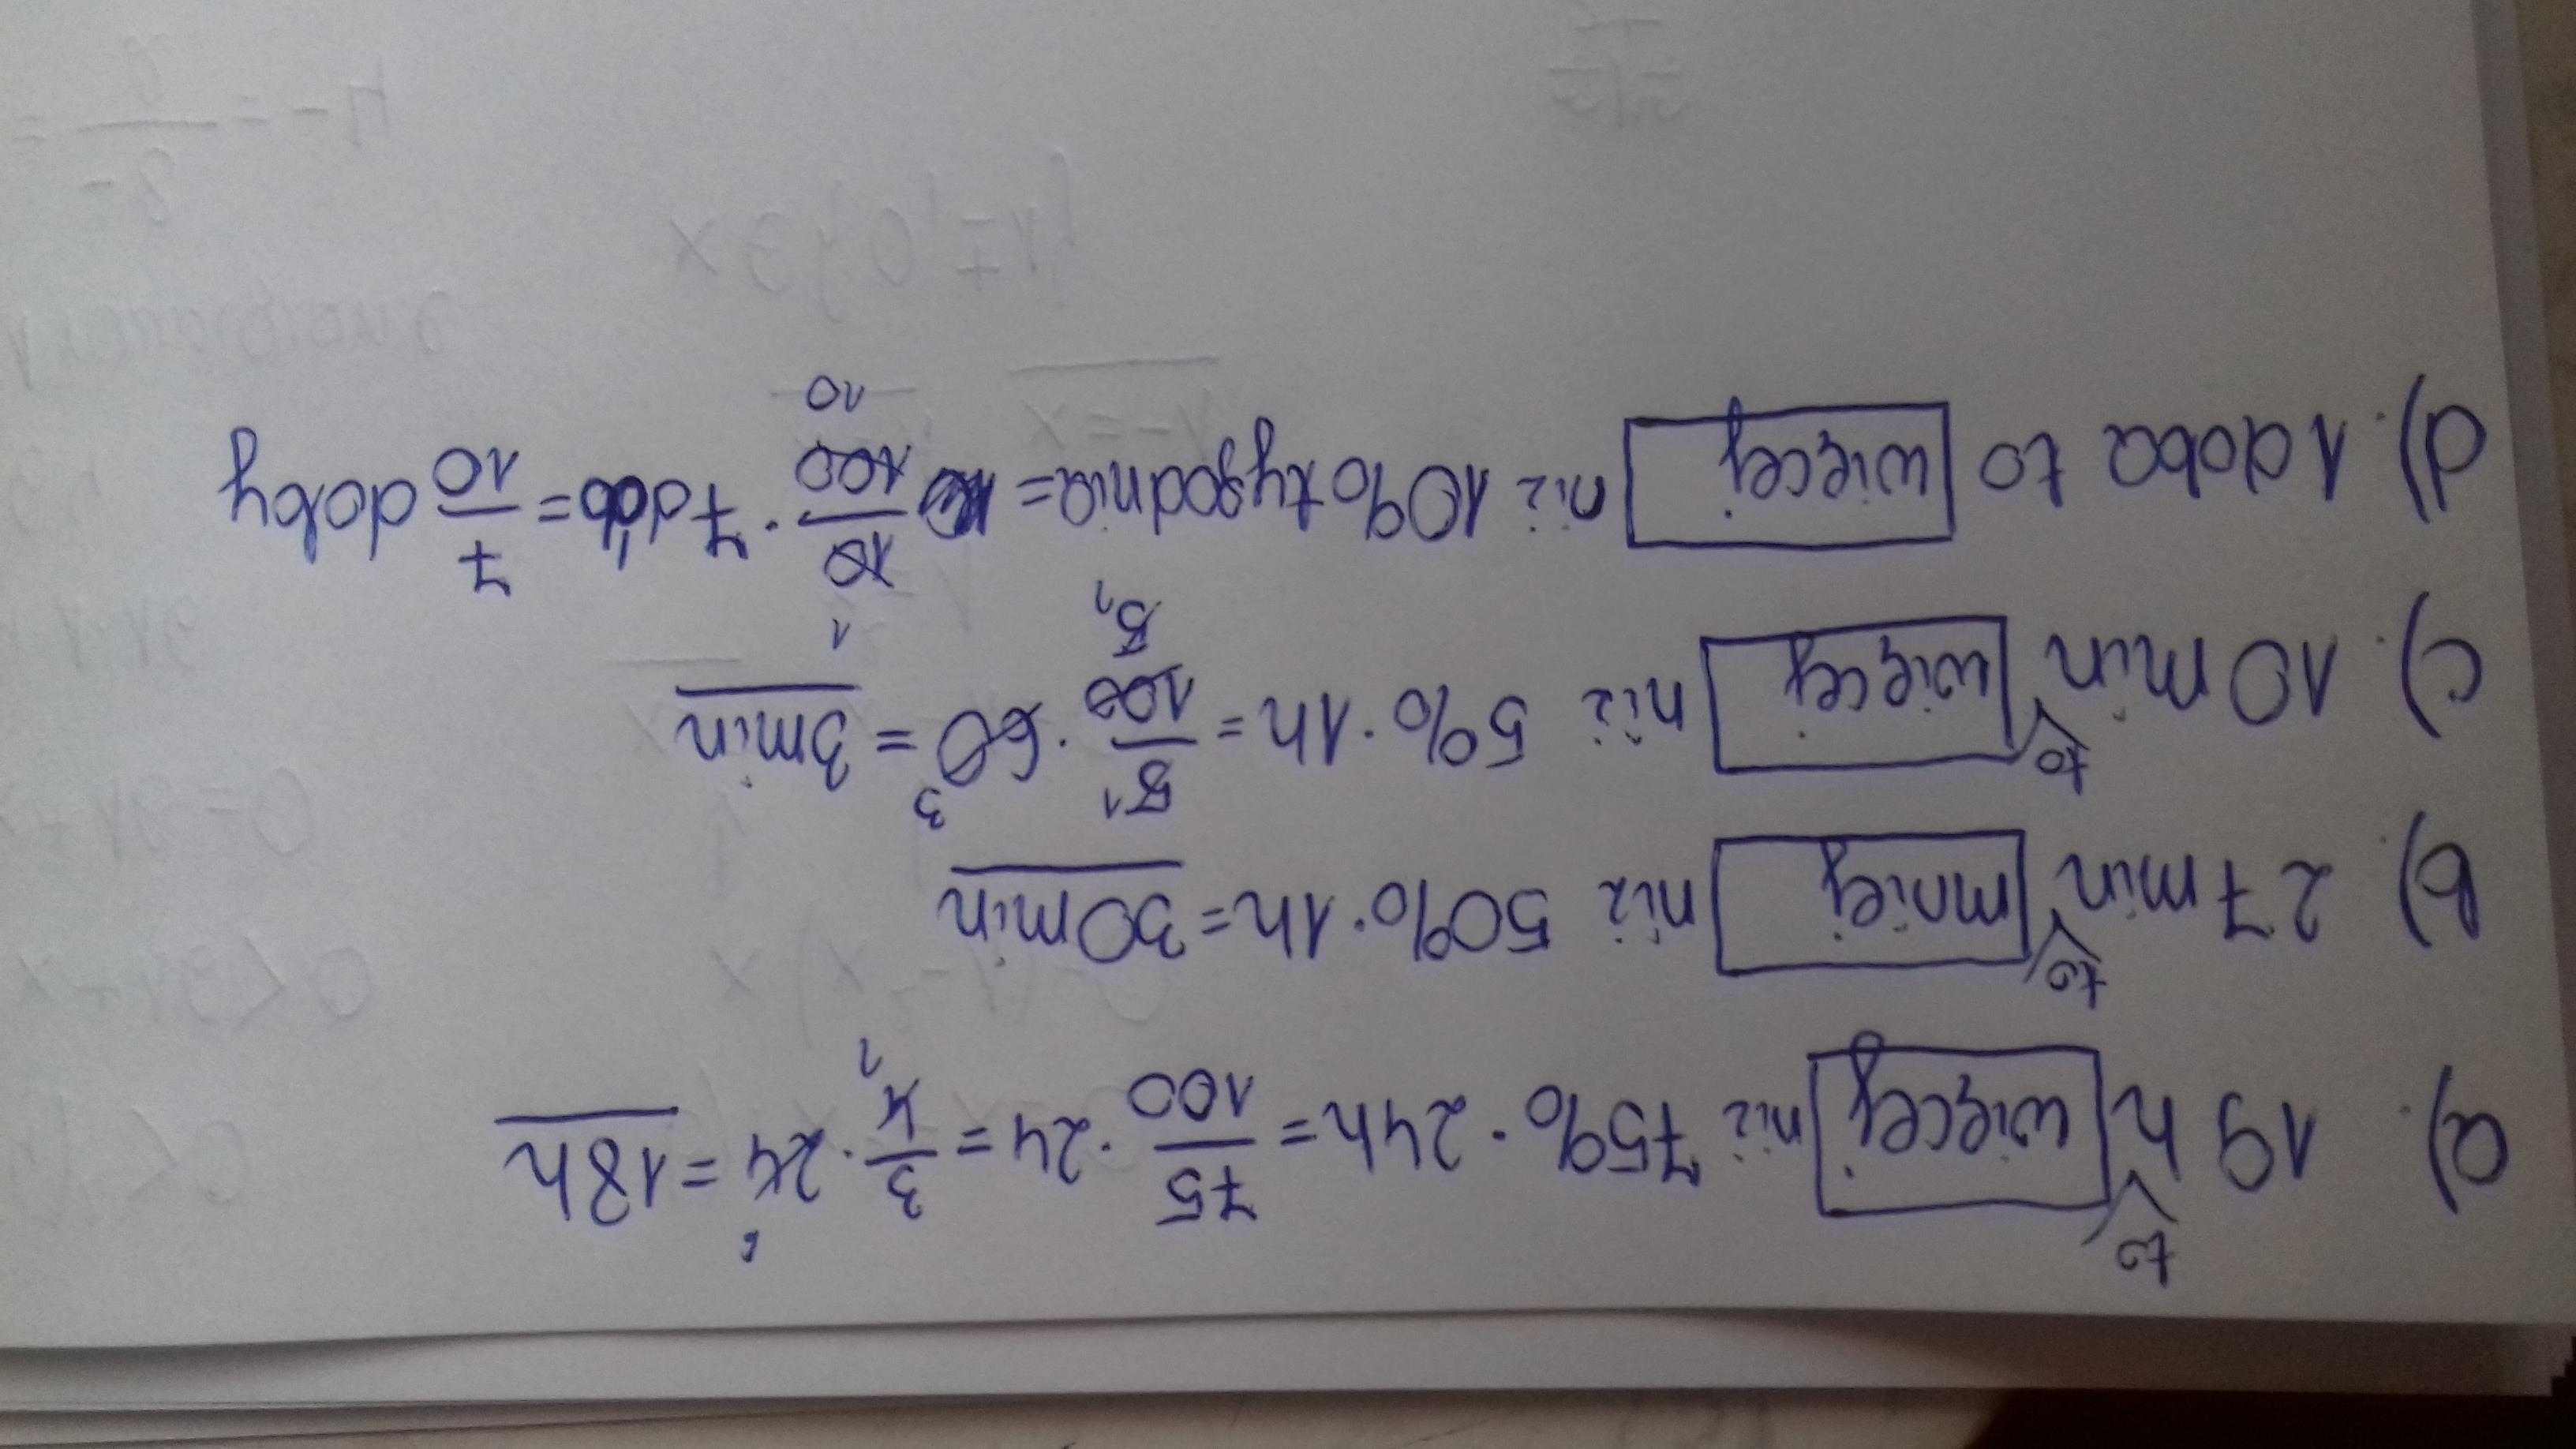 a). 19 h to więcej niż 75% · 24h = 75/100 · 24 = 3/4 · 24 = 18h
b). 27 min to mniej niż 50% · 1h = 30min
c). 10 min to więcej niż 5% · 1h = 5/100 · 60 = 3min
d). 1 doba to więcej niż 10% tygodnia = 10/100 · 7 dób = 7/10 doby